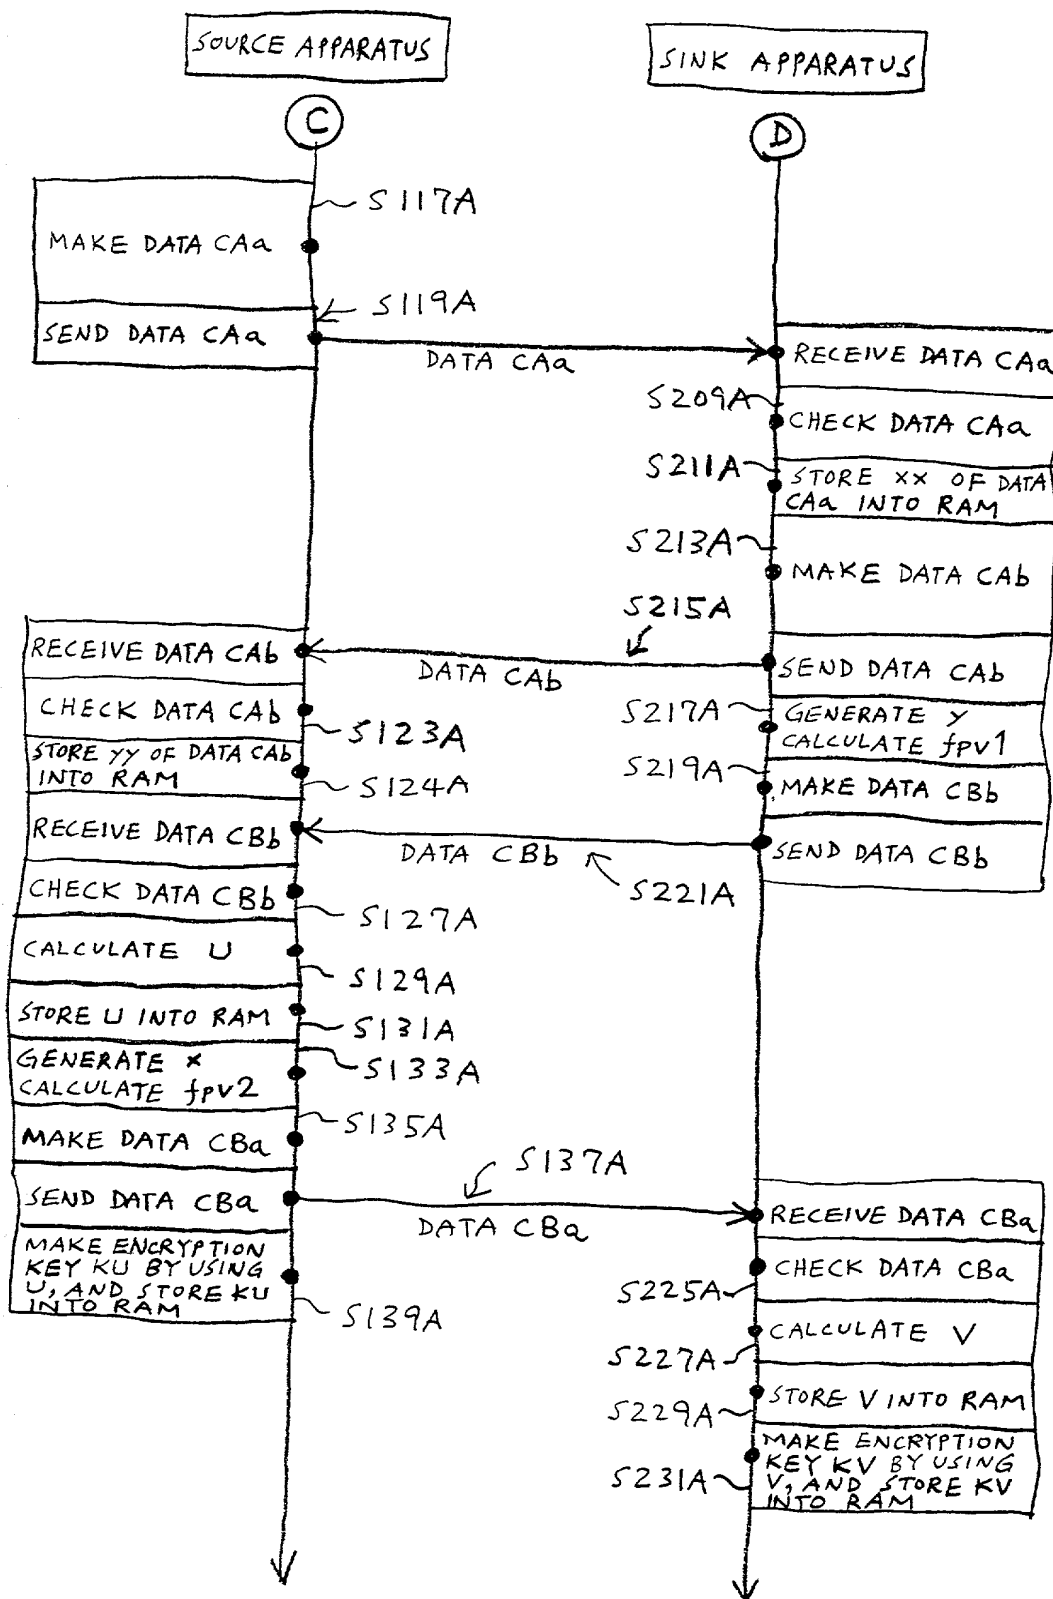 SOURCE APPARATUS
SINK APPARATUS
C
D
S117A
MAKE DATA CAa
S119A
SEND DATA CAa
DATA CAa
RECEIVE DATA CAa
S209A
CHECK DATA CAa
S211A
STORE XX OF DATA
CAa INTO RAM
S213A
MAKE DATA CAb
S215A
RECEIVE DATA CAb
DATA CAb
SEND DATA CAb
CHECK DATA CAb
S123A
S217A
GENERATE y
CALCULATE fpv1
STORE YY OF DATA CAb
INTO RAM
S124A
S219A
MAKE DATA CBb
RECEIVE DATA CBb
DATA CBb
SEND DATA CBb
S221A
CHECK DATA CBb
S127A
CALCULATE U
S129A
STORE U INTO RAM
S131A
GENERATE x
CALCULATE fpv2
S133A
S135A
MAKE DATA CBa
S137A
SEND DATA CBa
DATA CBa
RECEIVE DATA CBa
MAKE ENCRYPTION
KEY KU BY USING
U, AND STORE KU
INTO RAM
S139A
CHECK DATA CBa
S225A
CALCULATE V
S227A
STORE V INTO RAM
S229A
MAKE ENCRYPTION
KEY KV BY USING
V, AND STORE KV
INTO RAM
S231A